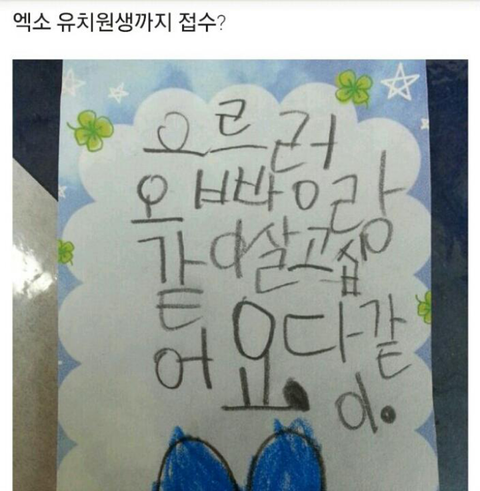 엑소 유치원생까지 접수?
으르러
오빠ㅇ랑
같이살고십
어요.다같
이.